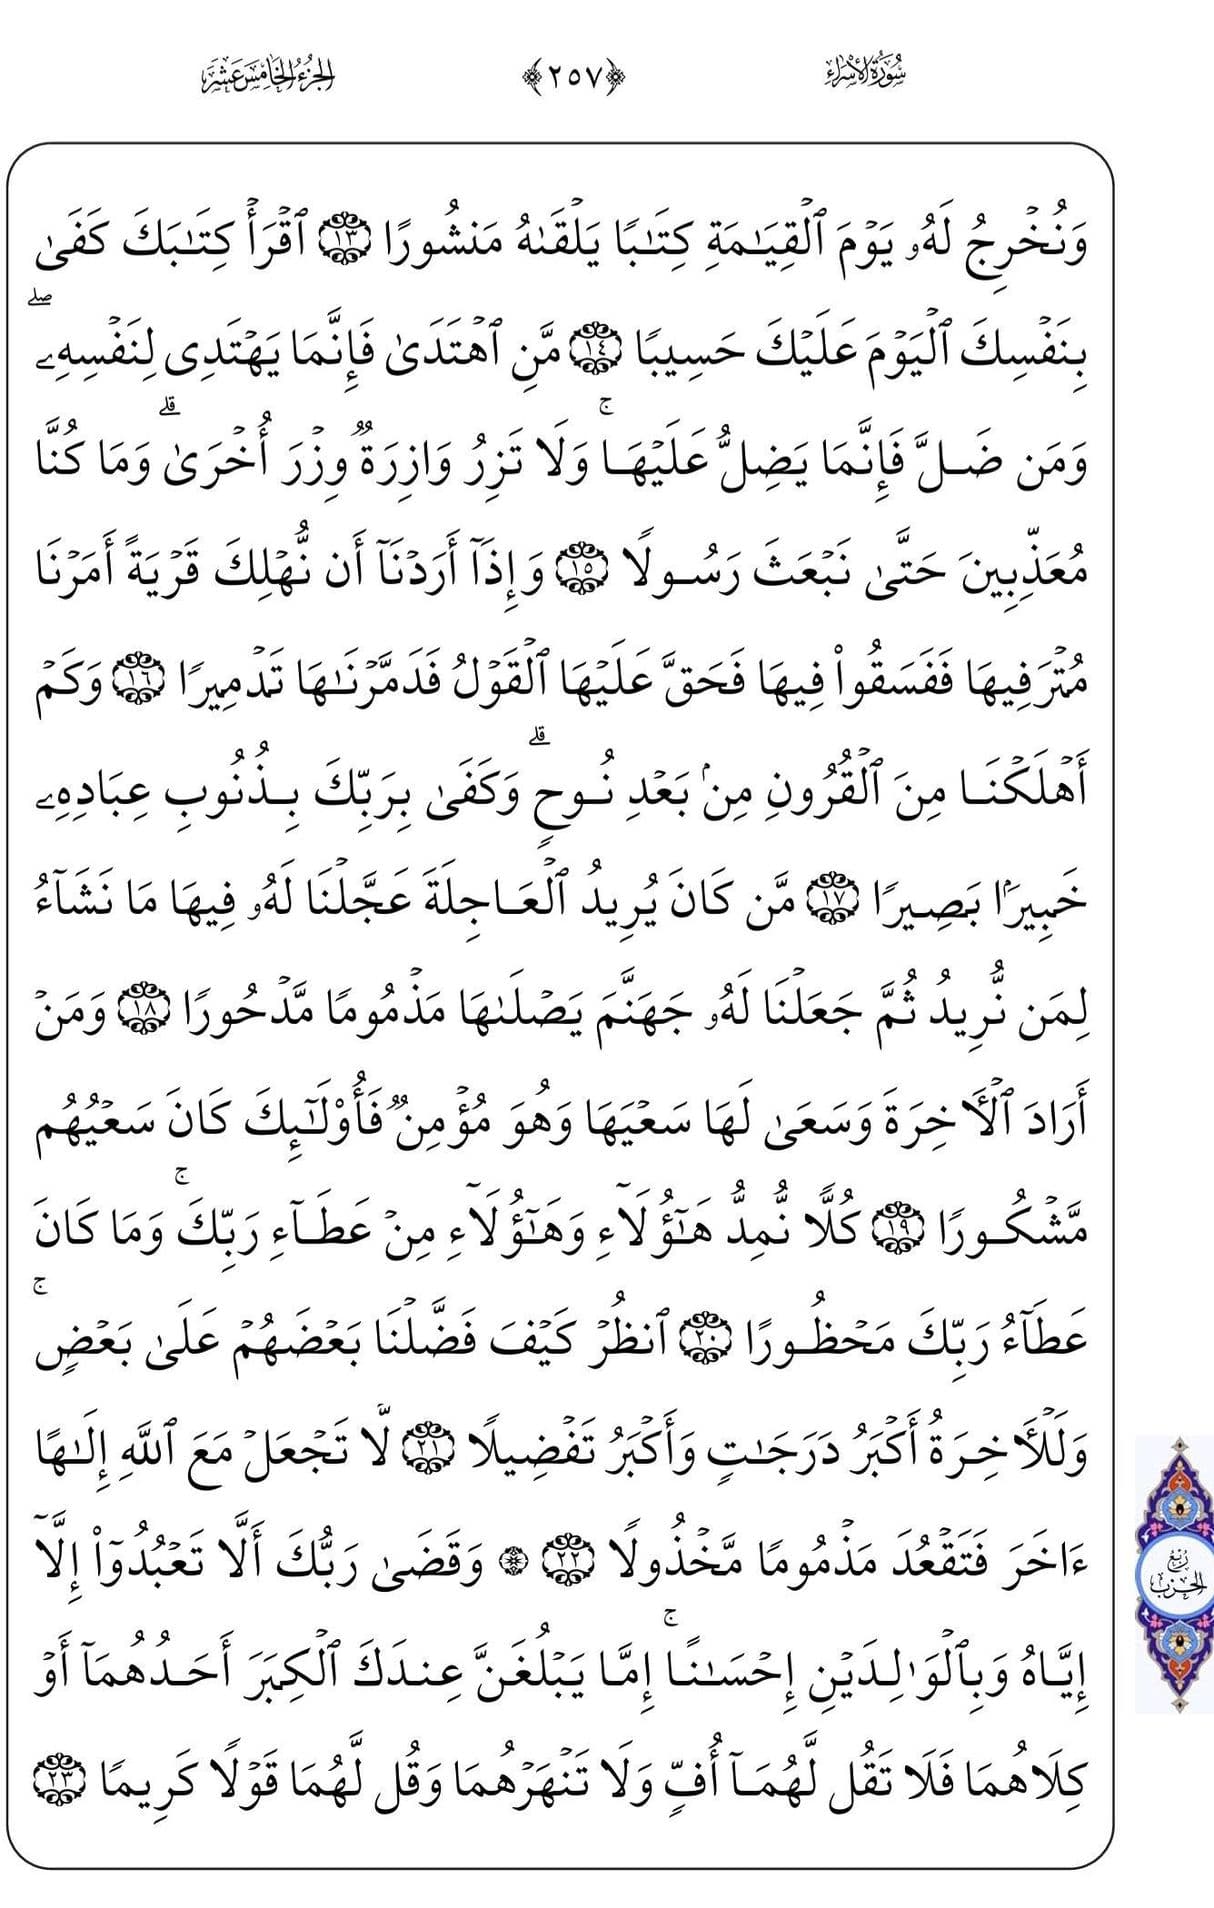 سُورَةُ الإِسْرَاءِ ﴿٢٥٧﴾ الجُزْءُ الخَامِسَ عَشَرَ
وَنُخْرِجُ لَهُۥ يَوْمَ ٱلْقِيَـٰمَةِ كِتَـٰبًا يَلْقَىٰهُ مَنشُورًا ١٣ ٱقْرَأْ كِتَـٰبَكَ كَفَىٰ
بِنَفْسِكَ ٱلْيَوْمَ عَلَيْكَ حَسِيبًا ١٤ مَّنِ ٱهْتَدَىٰ فَإِنَّمَا يَهْتَدِى لِنَفْسِهِۦ ۖ
وَمَن ضَلَّ فَإِنَّمَا يَضِلُّ عَلَيْهَا ۚ وَلَا تَزِرُ وَازِرَةٌ وِزْرَ أُخْرَىٰ ۗ وَمَا كُنَّا
مُعَذِّبِينَ حَتَّىٰ نَبْعَثَ رَسُولًا ١٥ وَإِذَآ أَرَدْنَآ أَن نُّهْلِكَ قَرْيَةً أَمَرْنَا
مُتْرَفِيهَا فَفَسَقُوا۟ فِيهَا فَحَقَّ عَلَيْهَا ٱلْقَوْلُ فَدَمَّرْنَـٰهَا تَدْمِيرًا ١٦ وَكَمْ
أَهْلَكْنَا مِنَ ٱلْقُرُونِ مِنۢ بَعْدِ نُوحٍ ۗ وَكَفَىٰ بِرَبِّكَ بِذُنُوبِ عِبَادِهِۦ
خَبِيرًۢا بَصِيرًا ١٧ مَّن كَانَ يُرِيدُ ٱلْعَاجِلَةَ عَجَّلْنَا لَهُۥ فِيهَا مَا نَشَآءُ
لِمَن نُّرِيدُ ثُمَّ جَعَلْنَا لَهُۥ جَهَنَّمَ يَصْلَىٰهَا مَذْمُومًا مَّدْحُورًا ١٨ وَمَنْ
أَرَادَ ٱلْـَٔاخِرَةَ وَسَعَىٰ لَهَا سَعْيَهَا وَهُوَ مُؤْمِنٌ فَأُو۟لَـٰٓئِكَ كَانَ سَعْيُهُم
مَّشْكُورًا ١٩ كُلًّا نُّمِدُّ هَـٰٓؤُلَآءِ وَهَـٰٓؤُلَآءِ مِنْ عَطَآءِ رَبِّكَ ۚ وَمَا كَانَ
عَطَآءُ رَبِّكَ مَحْظُورًا ٢٠ ٱنظُرْ كَيْفَ فَضَّلْنَا بَعْضَهُمْ عَلَىٰ بَعْضٍ ۚ
وَلَلْـَٔاخِرَةُ أَكْبَرُ دَرَجَـٰتٍ وَأَكْبَرُ تَفْضِيلًا ٢١ لَّا تَجْعَلْ مَعَ ٱللَّهِ إِلَـٰهًا
ءَاخَرَ فَتَقْعُدَ مَذْمُومًا مَّخْذُولًا ٢٢ ۞ وَقَضَىٰ رَبُّكَ أَلَّا تَعْبُدُوٓا۟ إِلَّآ
إِيَّاهُ وَبِٱلْوَٰلِدَيْنِ إِحْسَـٰنًا ۚ إِمَّا يَبْلُغَنَّ عِندَكَ ٱلْكِبَرَ أَحَدُهُمَآ أَوْ
كِلَاهُمَا فَلَا تَقُل لَّهُمَآ أُفٍّ وَلَا تَنْهَرْهُمَا وَقُل لَّهُمَا قَوْلًا كَرِيمًا ٢٣
رُبْعُ
الحِزْبِ